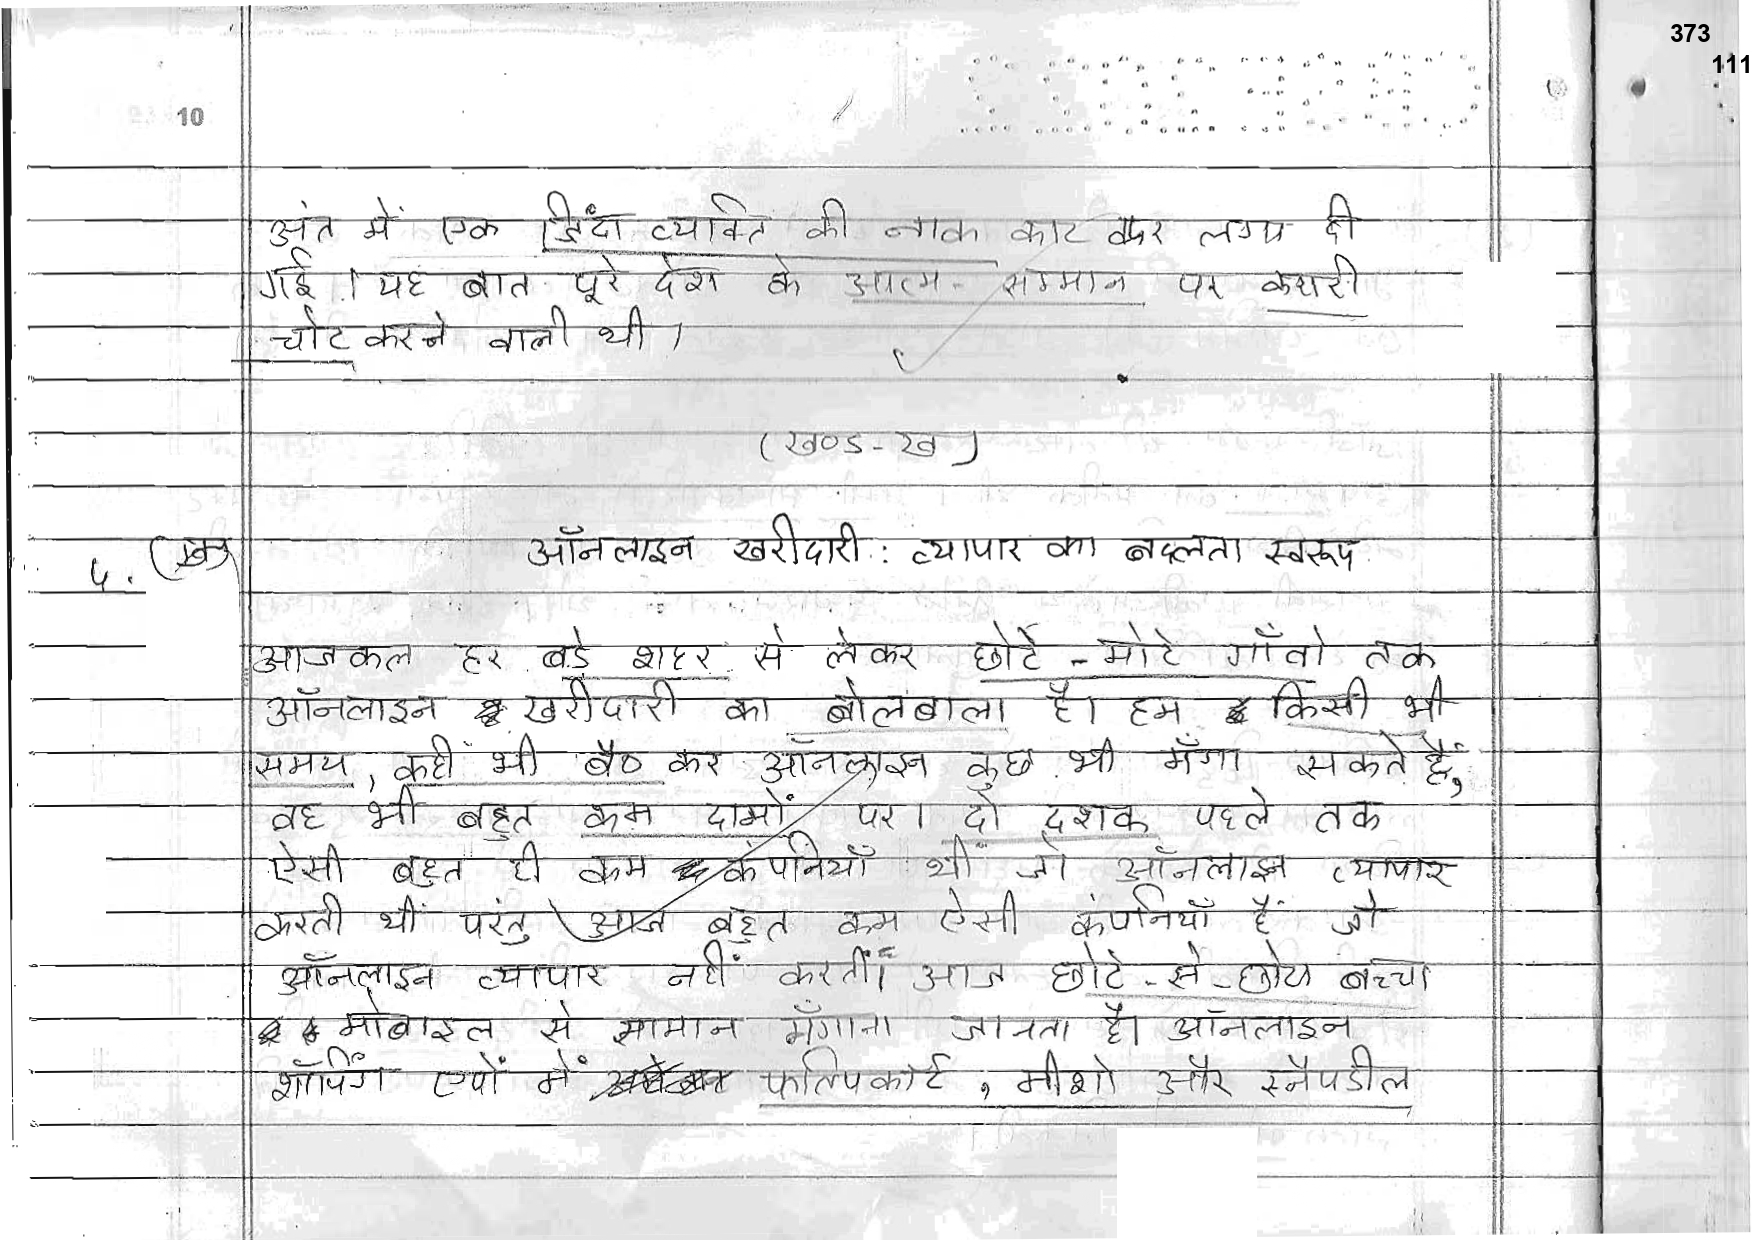 373
111
10
अंत में एक जिंदा व्यक्ति की नाक काट कर लगा दी
गई । यह बात पूरे देश के आत्म - सम्मान पर करारी
चोट करने वाली थी ।
(खण्ड - ख)
५. (ख) ऑनलाइन खरीदारी : व्यापार का बदलता स्वरूप
आजकल हर बड़े शहर से लेकर छोटे - मोटे गाँवो तक
ऑनलाइन खरीदारी का बोलबाला है। हम किसी भी
समय, कहीं भी बैठ कर ऑनलाइन कुछ भी मँगा सकते हैं,
वह भी बहुत कम दामों पर । दो दशक पहले तक
ऐसी बहुत ही कम कंपनियाँ थीं जो ऑनलाइन व्यापार
करती थीं परंतु आज बहुत कम ऐसी कंपनियाँ हैं जो
ऑनलाइन व्यापार नहीं करतीं। आज छोटे - से - छोटा बच्चा
मोबाइल से सामान मँगाना जानता है। ऑनलाइन
शॉपिंग एपों में फ्लिपकार्ट , मीशो और स्नैपडील